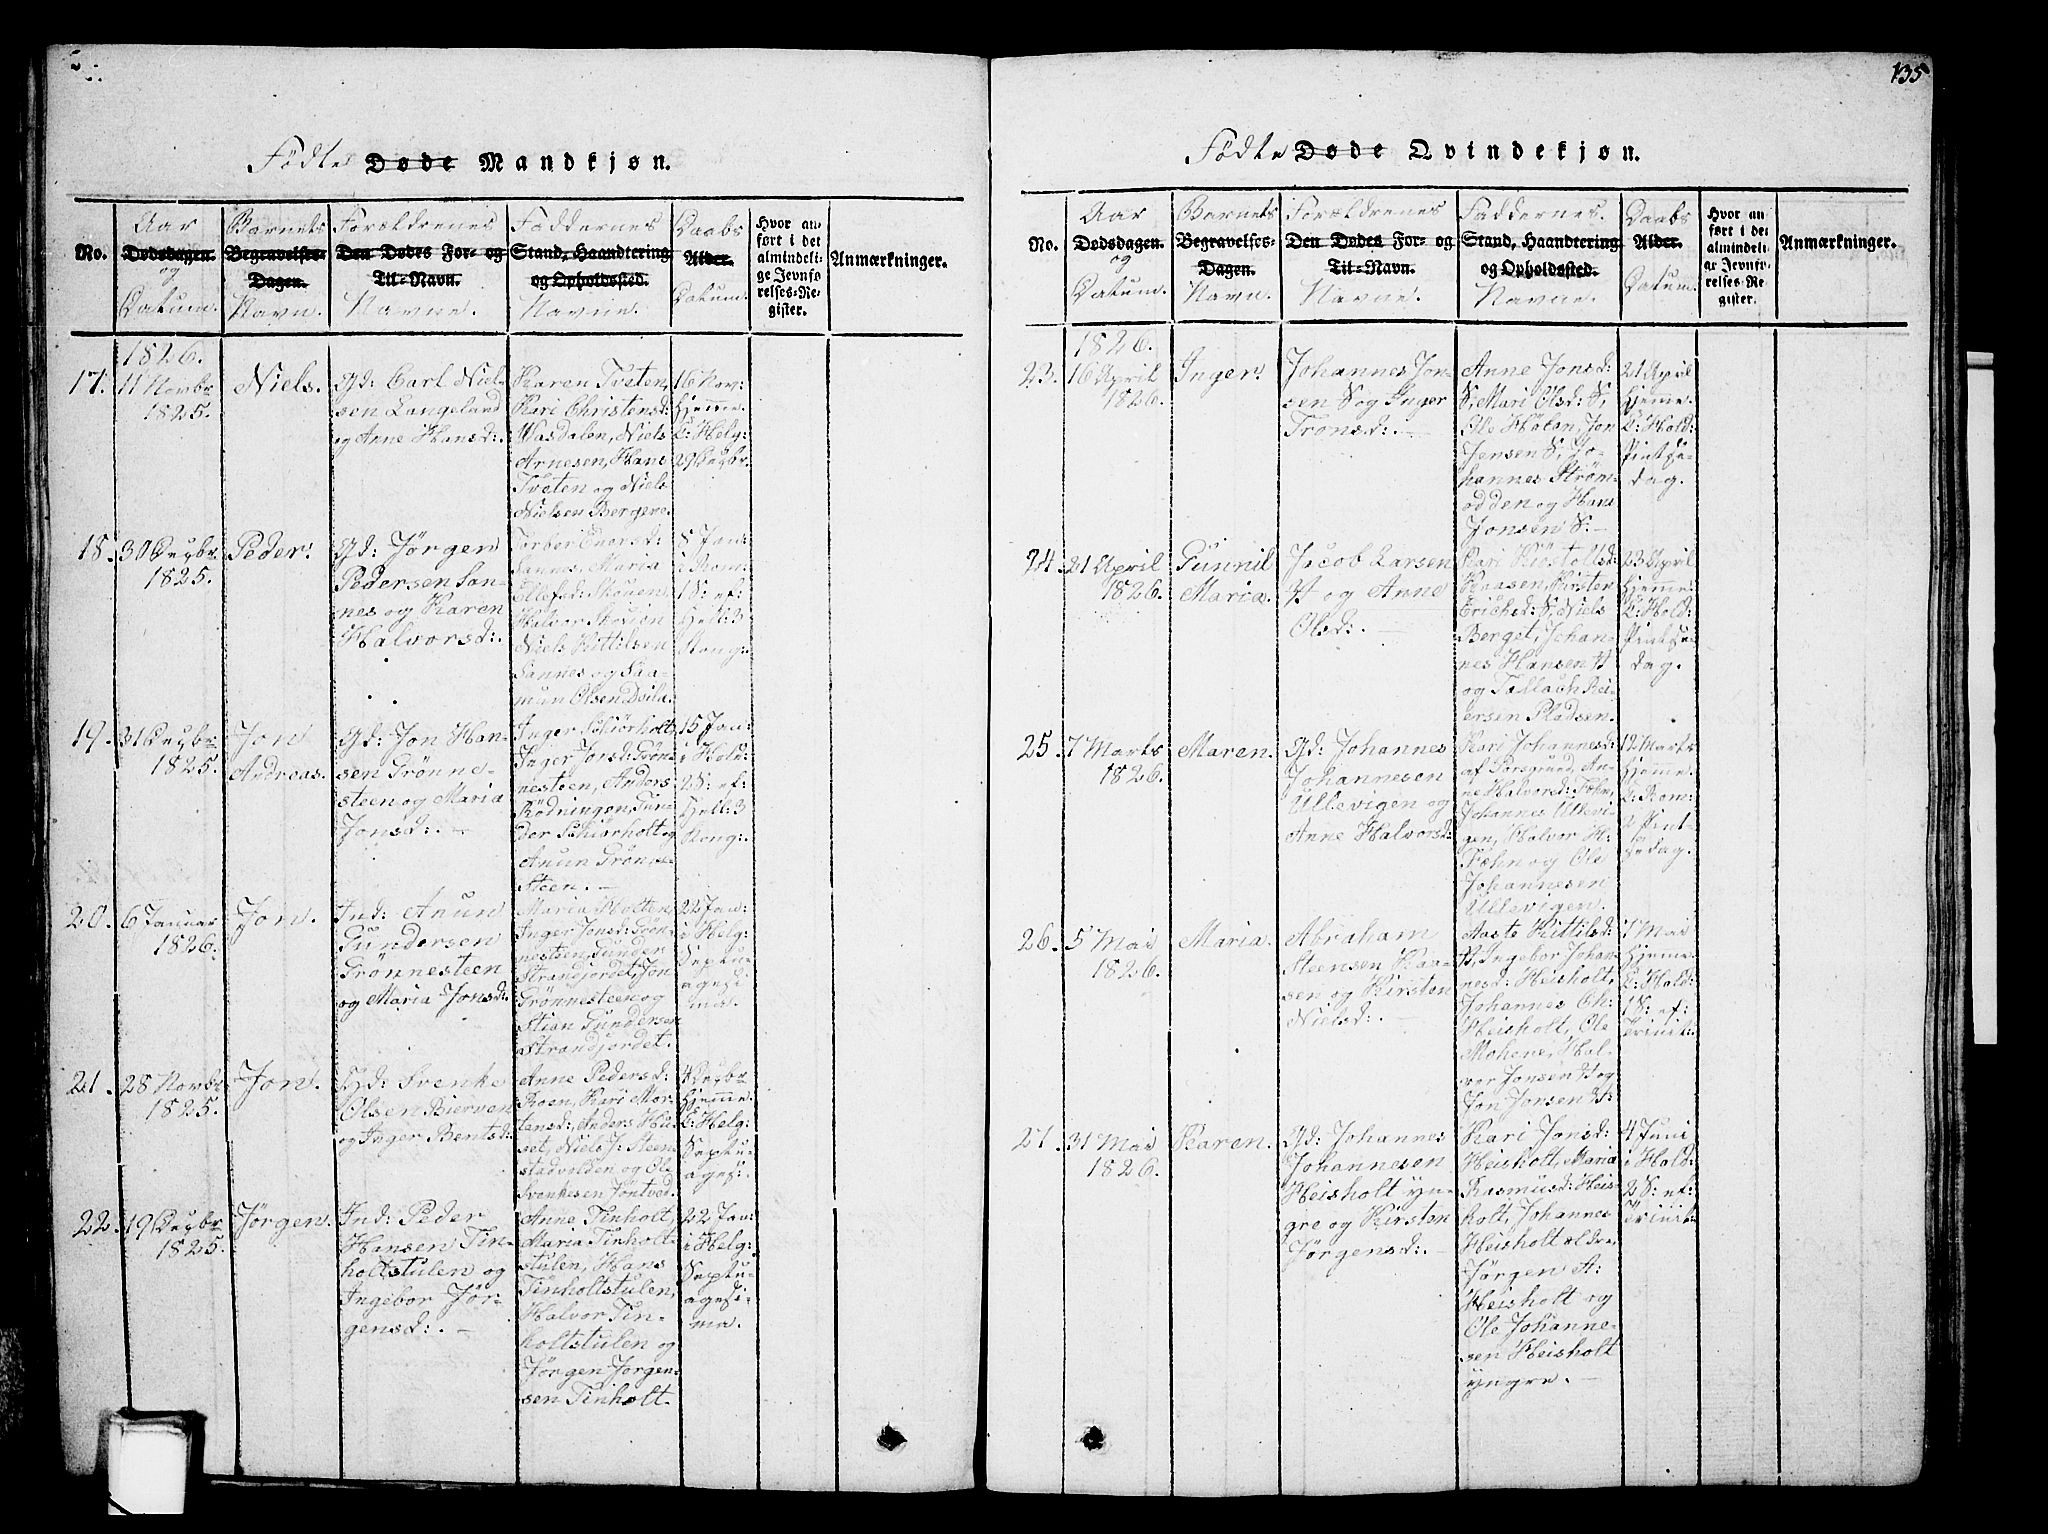 135
Fødte Døde Mandkjøn.
No.
Aar
Dødsdagen.
og
Datum.
Barnets
Begravelses-
Dagen.
Navn.
Forældrenes
Den Dødes For- og
Til-Navn.
Navne.
Faddernes
Stand, Haandtering
og Opholdssted.
Navne.
Daabs
Alder.
Datum.
Hvor an-
ført i det
almindeli-
ge Jevnfø-
relses-Re-
gister.
Anmærkninger.
1826.
17.
11 Novbr
1825.
Niels.
Gd: Carl Niel-
sen Langeland
og Anne Hansd:.
Karen Tveten,
Kari Christensd:
Wasdalen, Niels
Arnesen, Hans
Tveten og Niels
Nielsen Bergene.
16 Nov:
hjemme.
C: Helg:
29 Decbr.
18.
30 Decbr
1825.
Peder.
Gd: Jørgen
Pedersen San-
nes og Karen
Halvorsd:.
Torber Enersd:
Sannes, Maria
Ellefsd: Skouen
Halvor Skouen
Niels Kittilsen
Sannes og Saa-
mun Olsen Doila.
8 Jan:
i Rom:
1 S: ef:
Hell: 3
Kong:
19.
31 Decbr
1825.
Jon
Andreas.
Gd: Jon Han-
sen Grønne-
steen og Maria
Jonsd:. —
Inger Schiørholt,
Inger Jonsd: Grøn-
nesteen, Anders
Rødningen, Gun-
der Schiørholt og
Anun Grøn-
steen. —
15 Jan:
i Hold:
2 S: ef:
Hell: 3
Kong:
20.
6 Januar
1826.
Jon.
Ind: Anun
Gundersen
Grønnesteen
og Maria Jonsd:.
Maria Holten,
Inger Jonsd: Grøn-
nesteen, Gunder
Strandjordet, Jon
Grønnesteen og
Stian Gundersen
Strandjordet.
22 Jan:
i Helg:
Septu-
agesi-
ma.
21.
28 Novbr
1825.
Jon.
Gd: Svenke
Olsen Bierven
og Inger Bentsd:
Anne Pedersd:
Roen, Kari Mor-
tensd:, Anders Hu-
set, Niels J: Steen-
stadvolden og Ole
Svenkesen Jøntved.
4 Decbr
hjemme
C: Helg:
Septu-
agesi:
22.
19 Decbr
1825.
Jørgen.
Ind: Peder
Hansen Tin-
holtstulen og
Ingebor Jør-
gensd:. —
Anne Tinholt,
Maria Tinholt-
stulen, Hans
Tinholtstulen,
Halvor Tin-
holtstulen og
Jørgen Jørgen-
sen Tinholt.
22 Jan:
i Helg:
Septu-
agesi-
ma.
Fødte Døde Qvindekjøn.
No.
Aar
Dødsdagen.
og
Datum.
Barnets
Begravelses-
Dagen.
Navn.
Forældrenes
Den Dødes For- og
Til-Navn.
Navne.
Faddernes.
Stand, Haandtering
og Opholdssted.
Navne.
Daabs
Alder.
Datum.
Hvor an-
ført i det
almindeli-
ge Jevnfø-
relses-Re-
gister.
Anmærkninger.
1826.
23.
16 April
1826.
Inger.
Johannes Jon-
sen S og Inger
Tronsd:. —
Anne Jonsd:
S, Mari Olsd: S,
Ole Holan, Jon
Jensen S, Jo-
hannes Strøm-
odden og Hans
Jonsen S. —
21 April
hjemme.
C: Hold:
Pintse-
dag.
24.
21 April
1826.
Gunnil
Maria.
Jacob Larsen
H og Anne
Olsd:. —
Kari Kiøstolfsd:
Kaasen, Kirsten
Erichsd: S, Niels
Berget, Johan-
nes Hansen H
og Tallach Rei-
ersen Pladsen.
23 April
hjemme:
C: Hold:
Pintse-
dag.
25.
7 Marts
1826.
Maren.
Gd: Johannes
Johannesen
Ullevigen og
Anne Halvorsd:
Kari Johannesd:
af Porsgrund, An-
ne Halvorsd: Fæhn,
Johannes Ullevi-
gen, Halvor H:
Fæhn og Ole
Johannesen
Ullevigen.
12 Marts
hjemme.
C: Rom:
2 Pint-
sedag.
26.
5 Mai
1826.
Maria.
Abraham
Steensen Kaa-
sen og Kirsten
Nielsd:. —
Aaste Kittilsd:
H, Ingebor Johan-
nesd: Heisholt,
Johannes Ch:
Heisholt, Ole
Mohene, Hal-
vor Jonsen H og
Jon Jonsen H:
7 Mai
hjemme.
C: Hold:
1 S: ef:
Trinit:
27.
31 Mai
1826.
Karen.
Gd: Johannes
Johannesen
Heisholt yn-
gre og Kirsten
Jørgensd:. —
Kari Jonsd:
Heisholt, Maria
Rasmusd: Heis-
holt, Johannes
Heisholt ældre,
Jørgen A:
Heisholt og
Ole Johanne-
sen Heisholt
yngre. —
4 Juni
i Hold:
2 S: ef:
Trinit: